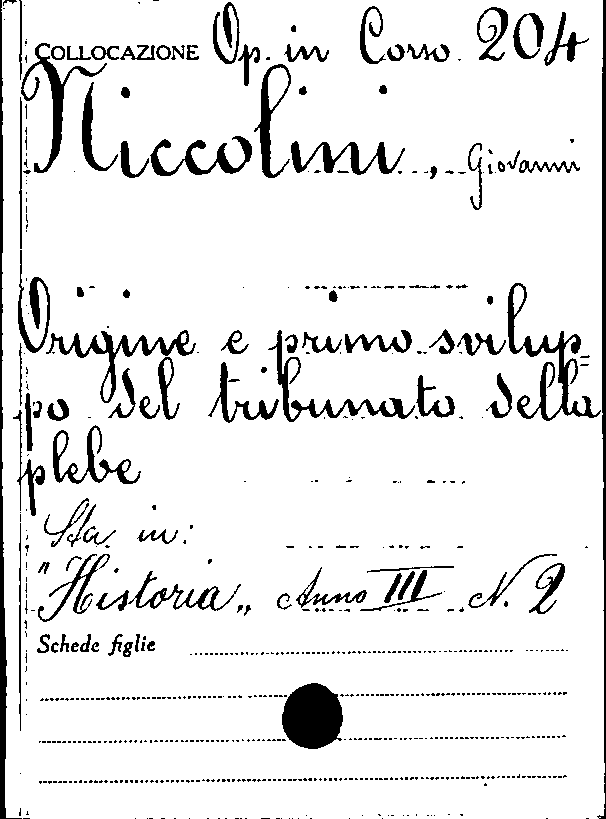 COLLOCAZIONE Op. in Corso 204
Niccolini, Giovanni
Origine e primo svilup=
po del tribunato della
plebe
Sta in:
"Historia„ Anno III N. 2
Schede figlie